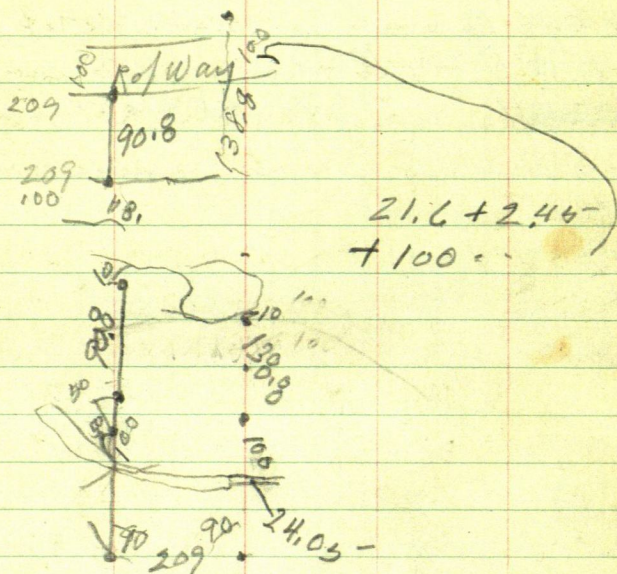 100
R of Way
100
209
90.8
138.8
209
100
"8.
21.6 + 2.45
+ 100
10
10
90.8
130.8
50
50
100
100
24.05
90
90
209